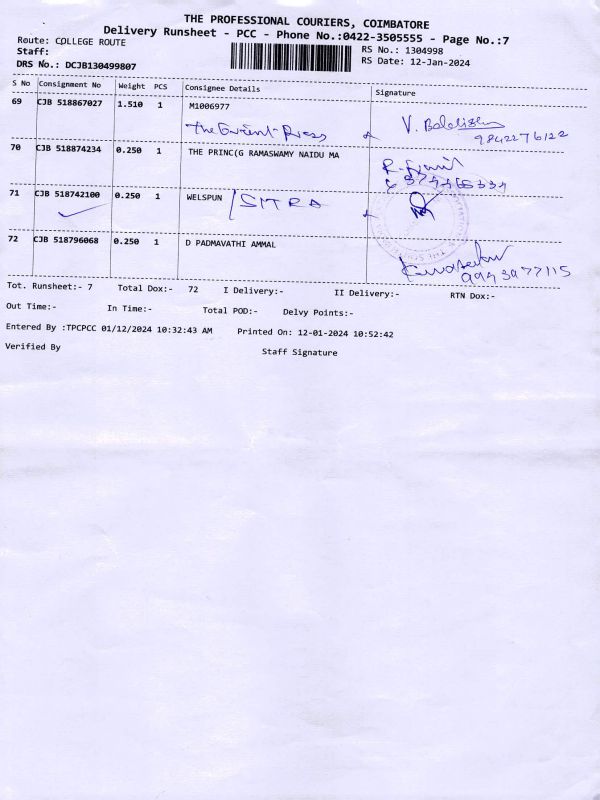 THE PROFESSIONAL COURIERS, COIMBATORE
Delivery Runsheet - PCC - Phone No.:0422-3505555 - Page No.:7
Route: COLLEGE ROUTE RS No.: 1304998
Staff: RS Date: 12-Jan-2024
DRS No.: DCJB130499807
S No Consignment No Weight PCS Consignee Details Signature
69 CJB 518867027 1.510 1 M1006977
The Orient Press 9842276122
70 CJB 518874234 0.250 1 THE PRINC(G RAMASWAMY NAIDU MA
71 CJB 518742100 0.250 1 WELSPUN / SITRA
72 CJB 518796068 0.250 1 D PADMAVATHI AMMAL
9943977115
Tot. Runsheet:- 7 Total Dox:- 72 I Delivery:- II Delivery:- RTN Dox:-
Out Time:- In Time:- Total POD:- Delvy Points:-
Entered By :TPCPCC 01/12/2024 10:32:43 AM Printed On: 12-01-2024 10:52:42
Verified By Staff Signature